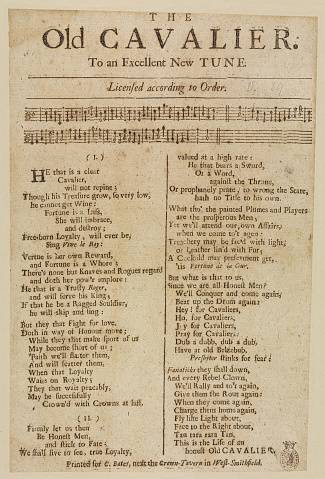 THE
Old CAVALIER.
To an Excellent New TUNE.
Licensed according to Order.
( I. )
HE that is a clear
Cavalier,
will not repine;
Though his Treasure grow, so very low,
he cannot get Wine:
Fortune is a Lass,
She will imbrace,
and destroy;
Free-born Loyalty, will ever be,
Sing Vive le Roy:
Vertue is her own Reward,
and Fortune is a Whore;
There's none but Knaves and Rogues regard
and doth her pow'r implore:
He that is a Trusty Roger,
and will serve his King;
If that he be a Ragged Souldier,
he will skip and sing:
But they that Fight for love,
Doth in way of Honour move;
While they that make sport of us
May become short of us;
'Faith we'll flatter them,
And will scatter them,
When that Loyalty
Waits on Royalty;
They that wait peacably,
May be successfully
Crown'd with Crowns at last.
( II. )
Firmly let us then
Be Honest Men,
and stick to Fate;
We shall live to see, true Loyalty,
valued at a high rate:
He that bears a Sword,
Or a Word,
against the Throne,
Or prophanely prate, to wrong the State,
hath no Title to his own.
What tho' the painted Plumes and Players
are the prosperous Men;
Yet we'll attend our own Affairs,
when we come to't agen:
Treachery may be fac'd with light;
or Leather lin'd with Fur;
A Cuckold may preferment get,
'tis Fortune de la Gur.
But what is that to us,
Since we are all Honest Men?
We'll Conquer and come again,
Beat up the Drum again:
Hey! for Cavaliers,
Ho, for Cavaliers,
Joy for Cavaliers,
Pray for Cavaliers:
Dub a dubb, dub a dub,
Have at old Belzebub.
Presbyter stinks for fear:
Fanaticks they shall down,
And every Rebel Clown,
We'll Rally and to't again,
Give them the Rout again:
When they come again,
Charge them home again,
Fly like Light about,
Face to the Right about,
Tan tara rara Tan,
This is the Life of an
honest Old CAVALIER.
Printed for C. Bates, next the Crown-Tavern in West-Smithfield.